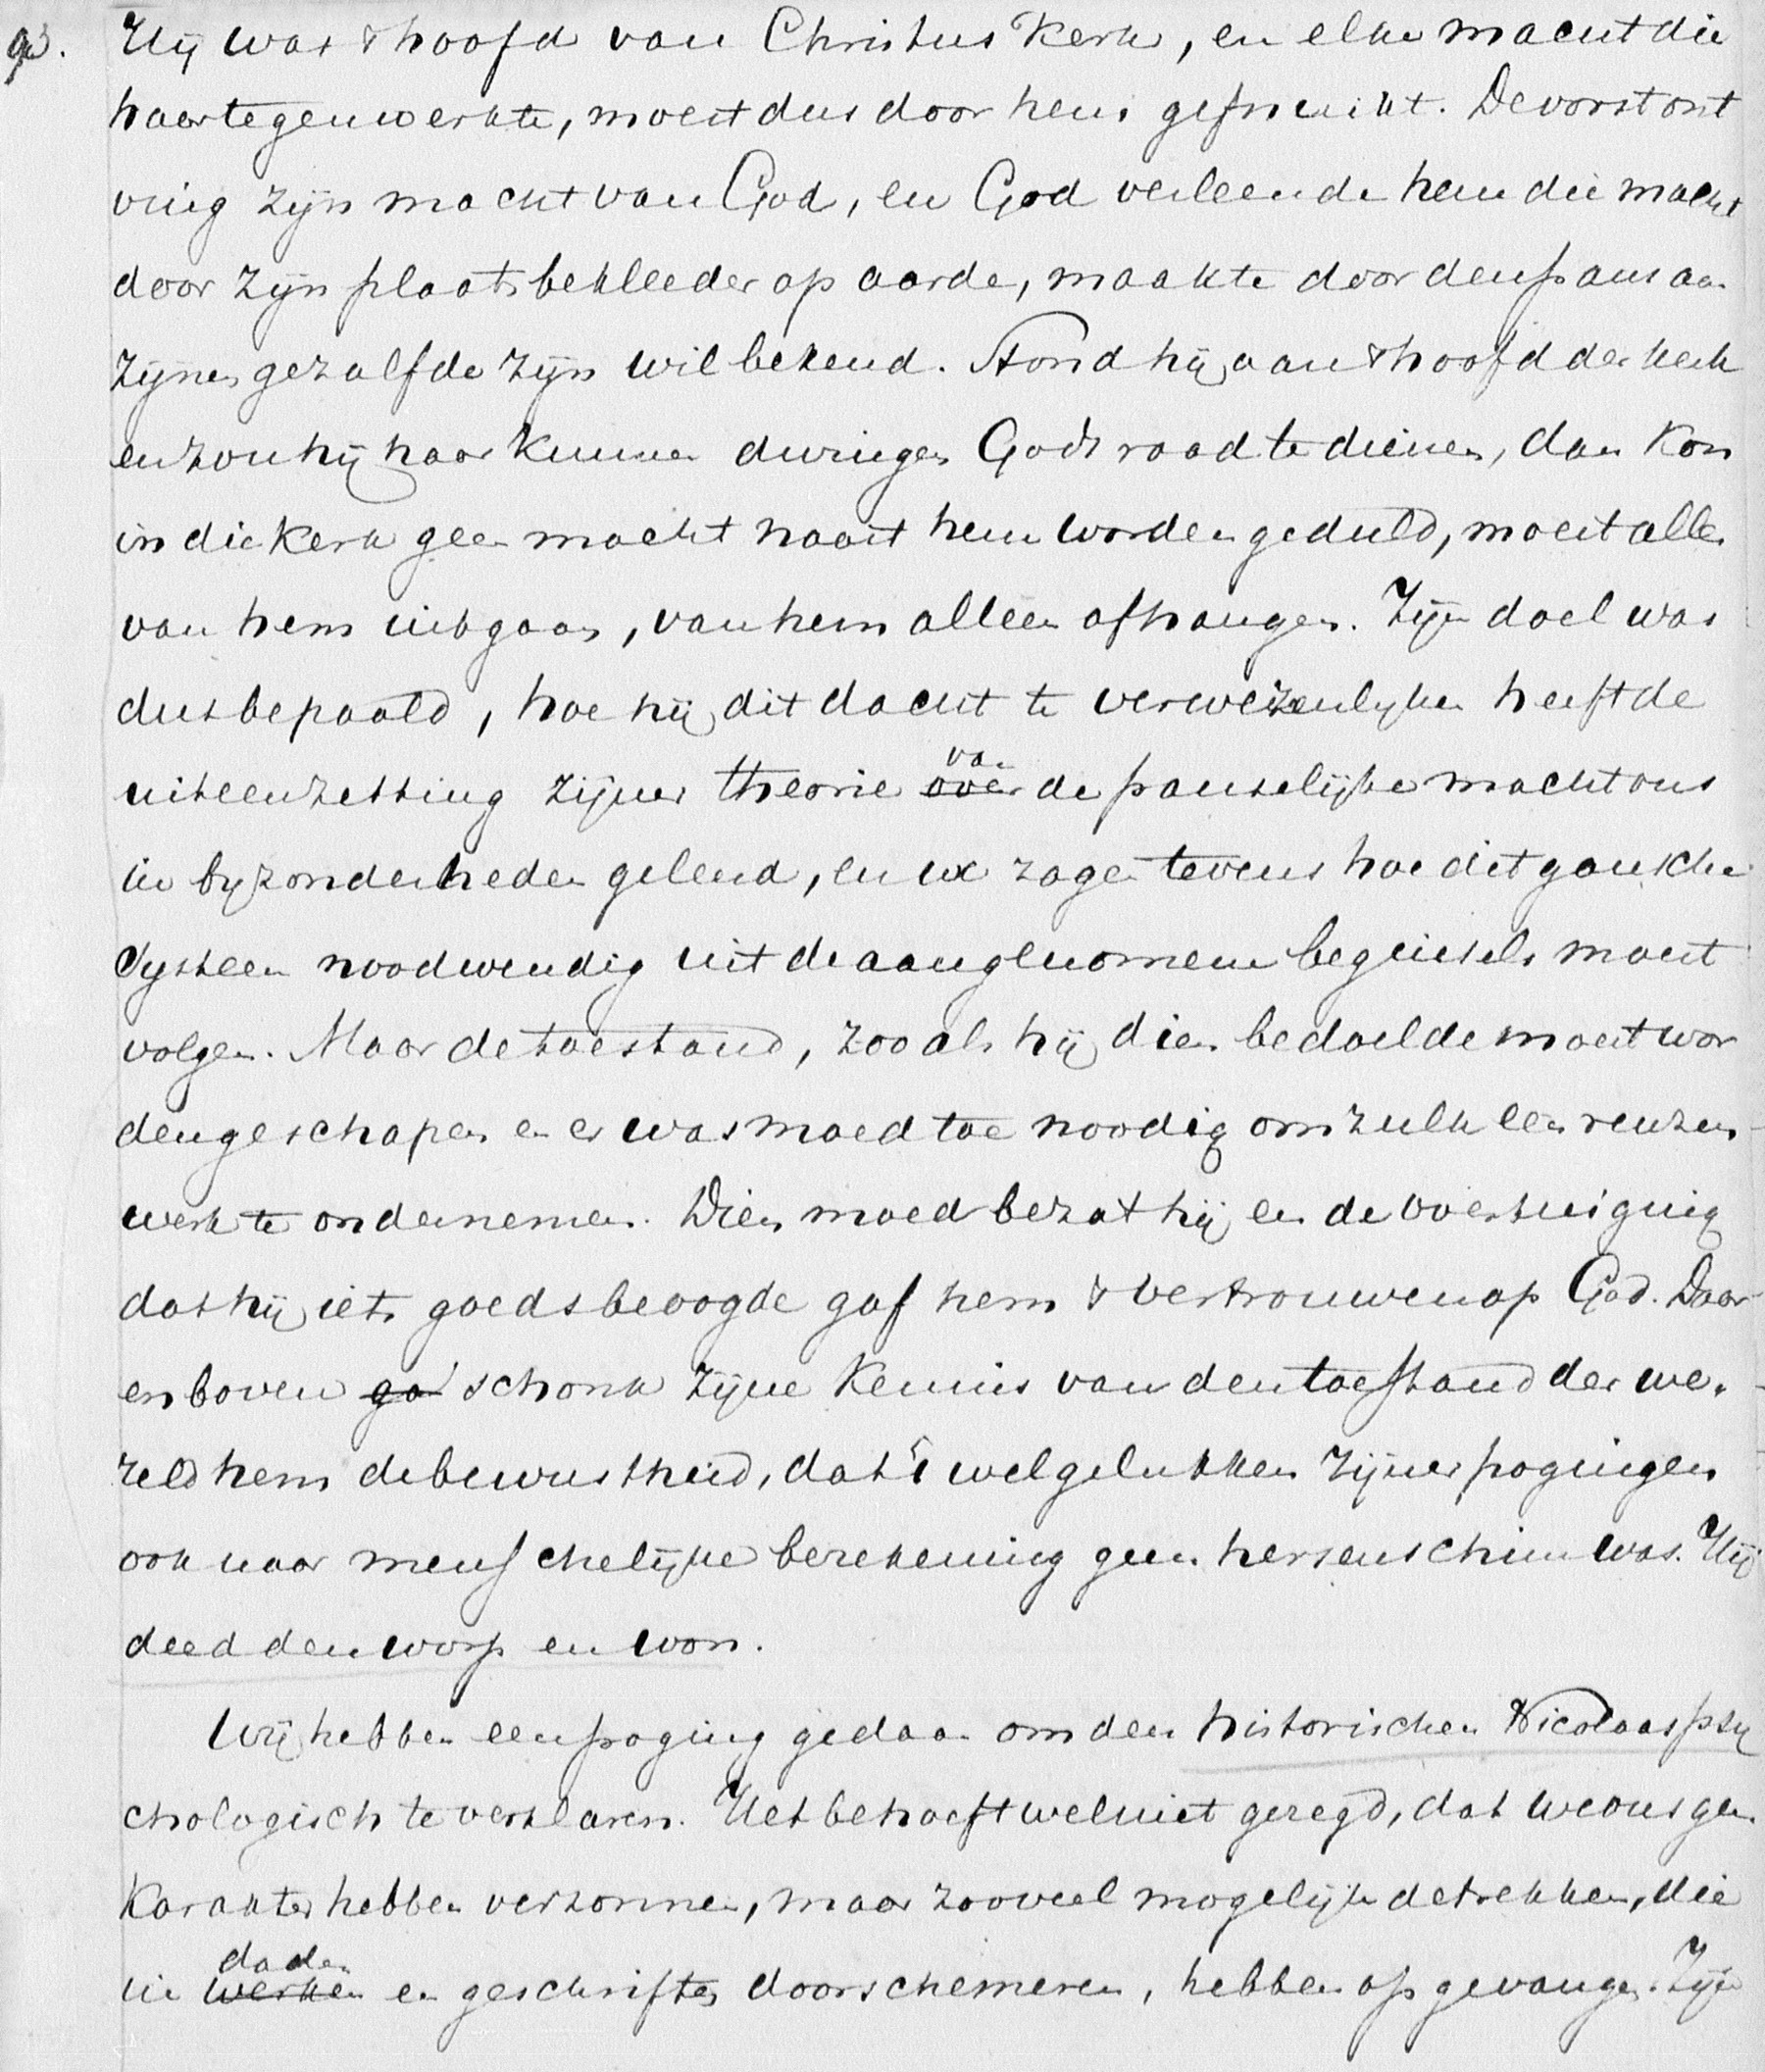 Hij was 't hoofd van Christus Kerk, en elke macht die
haar tegenwerkte, moest dus door hem gefnuikt. De vorst ont
ving zijn macht van God, en God verleende hem die macht
door zijn plaatsbekleeder op aarde, maakte door den paus aan
zijnen gezalfde zijn wil bekend. Stond hij aan 't hoofd der kerk
en zou hij haar kunnen dwingen Gods raad te dienen, dan kon
in die kerk geen macht naast hem worden geduld, moest alles
van hem uitgaan, van hem alleen afhangen. Zijn doel was
dus bepaald, hoe hij dit dacht te verwezenlijken heeft de
uiteenzetting zijner theorie over van de pauselijke macht ons
in byzonderheden geleerd, en we zagen tevens hoe dit gansche
systeem noodwendig uit de aangenomene beginsels moest
volgen. Maar de toestand, zooals hij dien bedoelde moest wor
den geschapen en er was moed toe noodig om zulk een reuzen-
werk te ondernemen. Dien moed bezat hij en de overtuiging
dat hij iets goeds beoogde gaf hem 't vertrouwen op God. Daar-
enboven ga schonk zijne kennis van den toestand der we-
reld hem de bewustheid, dat 't welgelukken zijner pogingen
ook naar menschelijke berekening geen hersenschim was. Hij
deed den worp en won.
Wij hebben een poging gedaan om den historischen Nicolaas psy
chologisch te verklaren. Het behoeft wel niet gezegd, dat we ons geen
karakter hebben verzonnen, maar zooveel mogelijk de trekken, die
in werken daden en geschriften doorschemeren, hebben opgevangen. Zijn